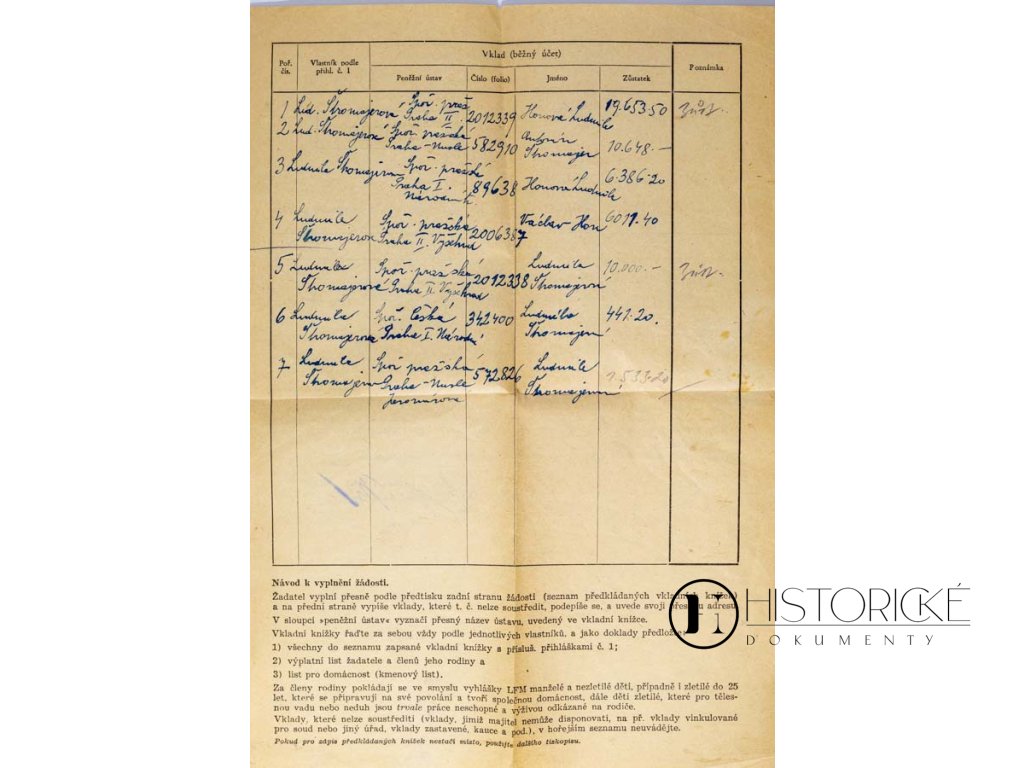 Poř. čís. Vlastník podle přihl. č. 1 Vklad (běžný účet) Poznámka
Peněžní ústav Číslo (folio) Jméno Zůstatek
1 Lud. Štromajerová Spoř. praž. Praha II. 2012339 Honová Ludmila 19.653·50
2 Lud. Štromajerová Spoř. pražská Praha-Nusle 582910 Antonín Štromajer 10.648.—
3 Ludmila Spoř. pražská Praha I. 89638 Honová Ludmila 6.386·20
4 Ludmila Spoř. pražská Praha II. Vyšehrad 2006387 Václav Hon 6011.40
5 Ludmila Štromajerová Spoř. pražská Praha II. Vyšehrad 2012338 Ludmila 10.000.—
6 Ludmila Štromajerová Spoř. Česká Praha I. Národní 342400 Ludmila 441·20.
7 Ludmila Spoř. pražská Praha-Nusle 572826 Ludmila
Návod k vyplnění žádosti.
Žadatel vyplní přesně podle předtisku zadní stranu žádosti (seznam předkládaných vkladních knížek)
a na přední straně vypíše vklady, které t. č. nelze soustředit, podepíše se, a uvede svoji přesnou adresu.
V sloupci »peněžní ústav« vyznačí přesný název ústavu, uvedený ve vkladní knížce.
Vkladní knížky řaďte za sebou vždy podle jednotlivých vlastníků, a jako doklady předložte
1) všechny do seznamu zapsané vkladní knížky s přísluš. přihláškami č. 1;
2) výplatní list žadatele a členů jeho rodiny a
3) list pro domácnost (kmenový list).
Za členy rodiny pokládají se ve smyslu vyhlášky LFM manželé a nezletilé děti, případně i zletilé do 25
let, které se připravují na své povolání a tvoří společnou domácnost, dále děti zletilé, které pro těles-
nou vadu nebo neduh jsou trvale práce neschopné a výživou odkázané na rodiče.
Vklady, které nelze soustřediti (vklady, jimiž majitel nemůže disponovati, na př. vklady vinkulované
pro soud nebo jiný úřad, vklady zastavené, kauce a pod.), v hořejším seznamu neuvádějte.
Pokud pro zápis předkládaných knížek nestačí místo, použijte dalšího tiskopisu.
HISTORICKÉ
DOKUMENTY